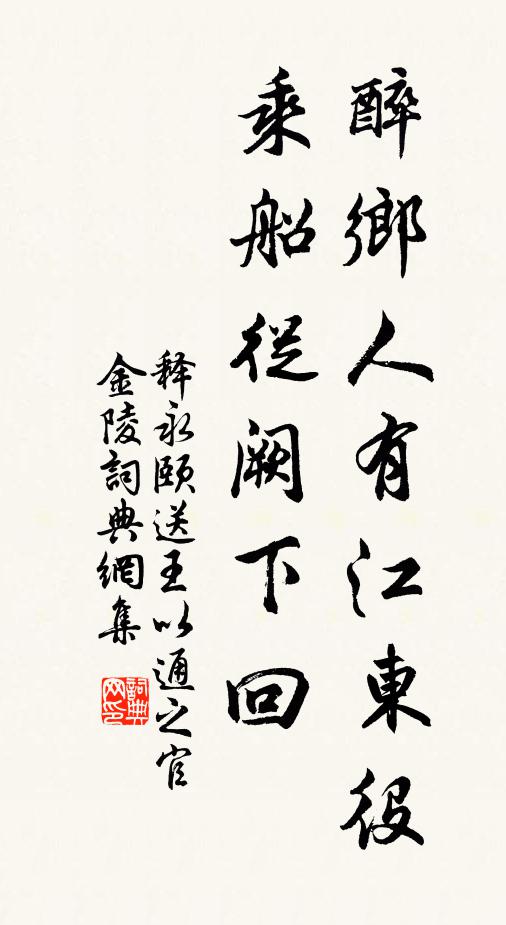 醉鄉人有江東役
乘船從闕下回
释永頤送王以通之官
金陵詞典網集
詞典
网印